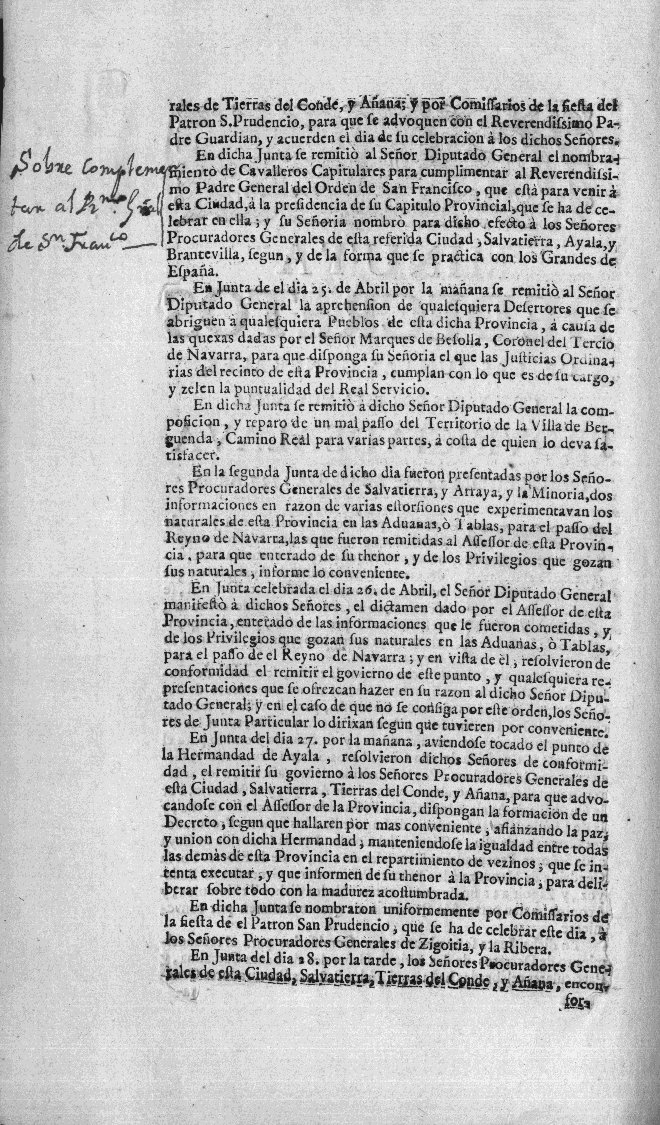 rales de Tierras del Conde, y Añana; y por Comissarios de la fiesta del
Patron S. Prudencio, para que se advoquen con el Reverendissimo Pa-
dre Guardian, y acuerden el dia de su celebracion à los dichos Señores.
En dicha Junta se remitiò al Señor Diputado General el nombra-
miento de Cavalleros Capitulares para cumplimentar al Reverendissi-
mo Padre General del Orden de San Francisco, que està para venir à
esta Ciudad, à la presidencia de su Capitulo Provincial, que se ha de ce-
lebrar en ella; y su Señoria nombrò para dicho efecto à los Señores
Procuradores Generales de esta referida Ciudad, Salvatierra, Ayala, y
Brantevilla, segun, y de la forma que se practica con los Grandes de
España.
Sobre complemen
tar al Rmo. Gñal
de Sn. Franco
En Junta de el dia 25. de Abril por la mañana se remitiò al Señor
Diputado General la aprehension de qualesquiera Desertores que se
abriguen à qualesquiera Pueblos de esta dicha Provincia, à causa de
las quexas dadas por el Señor Marques de Besolla, Coronel del Tercio
de Navarra, para que disponga su Señoria el que las Justicias Ordina-
rias del recinto de esta Provincia, cumplan con lo que es de su cargo,
y zelen la puntualidad del Real Servicio.
En dicha Junta se remitiò à dicho Señor Diputado General la com-
posicion, y reparo de un mal passo del Territorio de la Villa de Ber-
guenda, Camino Real para varias partes, à costa de quien lo deva sa-
tisfacer.
En la segunda Junta de dicho dia fueron presentadas por los Seño-
res Procuradores Generales de Salvatierra, y Arraya, y la Minoria, dos
informaciones en razon de varias estorsiones que experimentavan los
naturales de esta Provincia en las Aduanas, ò Tablas, para el passo del
Reyno de Navarra, las que fueron remitidas al Assessor de esta Provin-
cia, para que enterado de su thenor, y de los Privilegios que gozan
sus naturales, informe lo conveniente.
En Junta celebrada el dia 26. de Abril, el Señor Diputado General
manifestò à dichos Señores, el dictamen dado por el Assessor de esta
Provincia, enterado de las informaciones que le fueron cometidas, y
de los Privilegios que gozan sus naturales en las Aduanas, ò Tablas,
para el passo de el Reyno de Navarra; y en vista de èl, resolvieron de
conformidad el remitir el govierno de este punto, y qualesquiera re-
presentaciones que se ofrezcan hazer en su razon al dicho Señor Dipu-
tado General; y en el caso de que no se consiga por este orden, los Seño-
res de Junta Particular lo dirixan segun que tuvieren por conveniente.
En Junta del dia 27. por la mañana, aviendose tocado el punto de
la Hermandad de Ayala, resolvieron dichos Señores de conformi-
dad, el remitir su govierno à los Señores Procuradores Generales de
esta Ciudad, Salvatierra, Tierras del Conde, y Añana, para que advo-
candose con el Assessor de la Provincia, dispongan la formacion de un
Decreto, segun que hallaren por mas conveniente, afianzando la paz,
y union con dicha Hermandad, manteniendose la igualdad entre todas
las demàs de esta Provincia en el repartimiento de vezinos, que se in-
tenta executar, y que informen de su thenor à la Provincia, para deli-
berar sobre todo con la madurez acostumbrada.
En dicha Junta se nombraron uniformemente por Comissarios de
la fiesta de el Patron San Prudencio, que se ha de celebrar este dia, à
los Señores Procuradores Generales de Zigoitia, y la Ribera.
En Junta del dia 28. por la tarde, los Señores Procuradores Gene-
rales de esta Ciudad, Salvatierra, Tierras del Conde, y Añana, encon-
for-